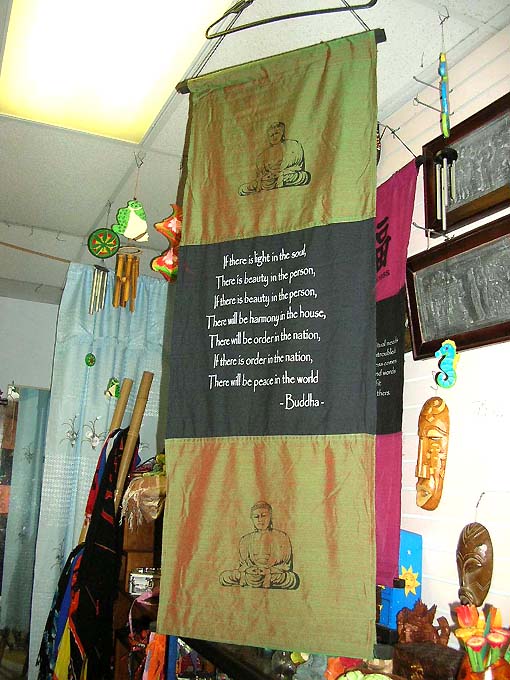 If there is light in the soul,
There is beauty in the person,
If there is beauty in the person,
There will be harmony in the house,
There will be order in the nation,
If there is order in the nation,
There will be peace in the world
- Buddha -
troubled
comes
and words
fit
thers.